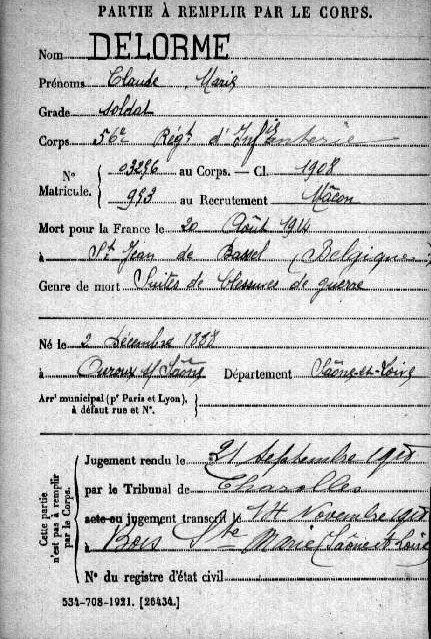 PARTIE À REMPLIR PAR LE CORPS.
Nom DELORME
Prénoms Claude Marie
Grade soldat
Corps 56e Régt d'Infanterie
N° Matricule. 03296 au Corps. — Cl. 1908
993 au Recrutement Mâcon
Mort pour la France le 20 Août 1914
à St Jean de Bassel (Belgique)
Genre de mort Suites de blessures de guerre
Né le 2 Décembre 1888
à Ouroux s/ Saône Département Saône-et-Loire
Arrt municipal (pr Paris et Lyon), à défaut rue et N°.
Cette partie n'est pas à remplir par le Corps.
Jugement rendu le 21 septembre
par le Tribunal de Charolles
acte ou jugement transcrit le 14 Novembre
à Bois Ste Marie (Saône et Loire
N° du registre d'état civil
534-708-1921. [26434.]